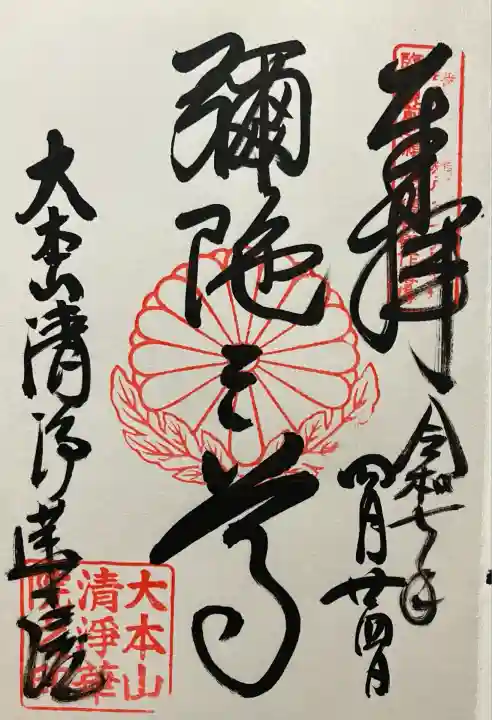 奉拝
令和七年
四月廿四日
彌陀三尊
大本山清浄華院
大本山
清淨華
院